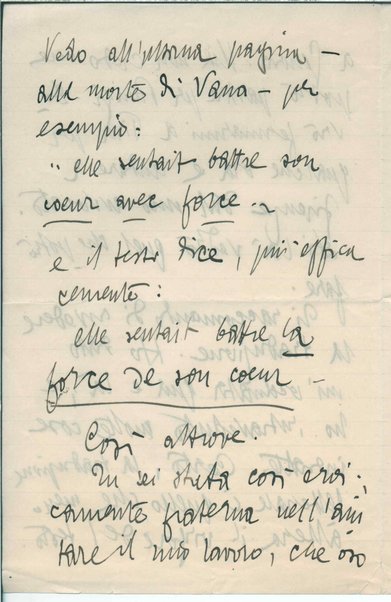 Vedo all'ultima pagina –
alla morte di Vana – per
esempio:
„ elle sentait battre son
coeur avec force „
e il testo dice, più effica
cemente:
elle sentait battre la
force de son coeur –
Così altrove.
Tu sei stata così eroi-
camente fraterna nell'aiu
tare il mio lavoro, che oso